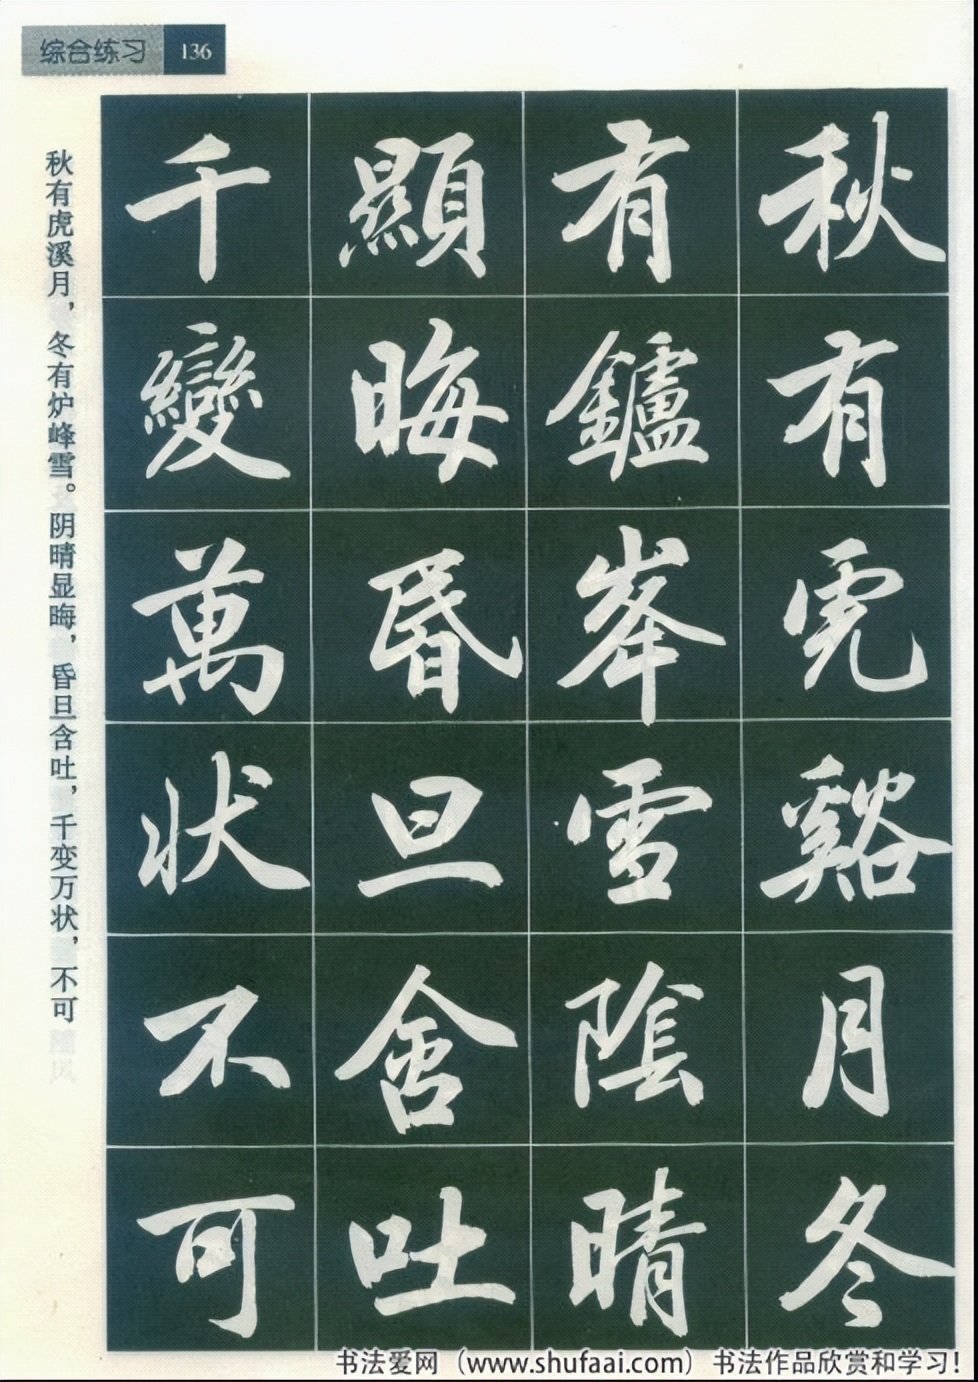 综合练习 136
秋有虎谿月冬
有鑪峯雪陰晴
顯晦昏旦含吐
千變萬状不可
秋有虎溪月，冬有炉峰雪。阴晴显晦，昏旦含吐，千变万状，不可
书法爱网（www.shufaai.com）书法作品欣赏和学习！